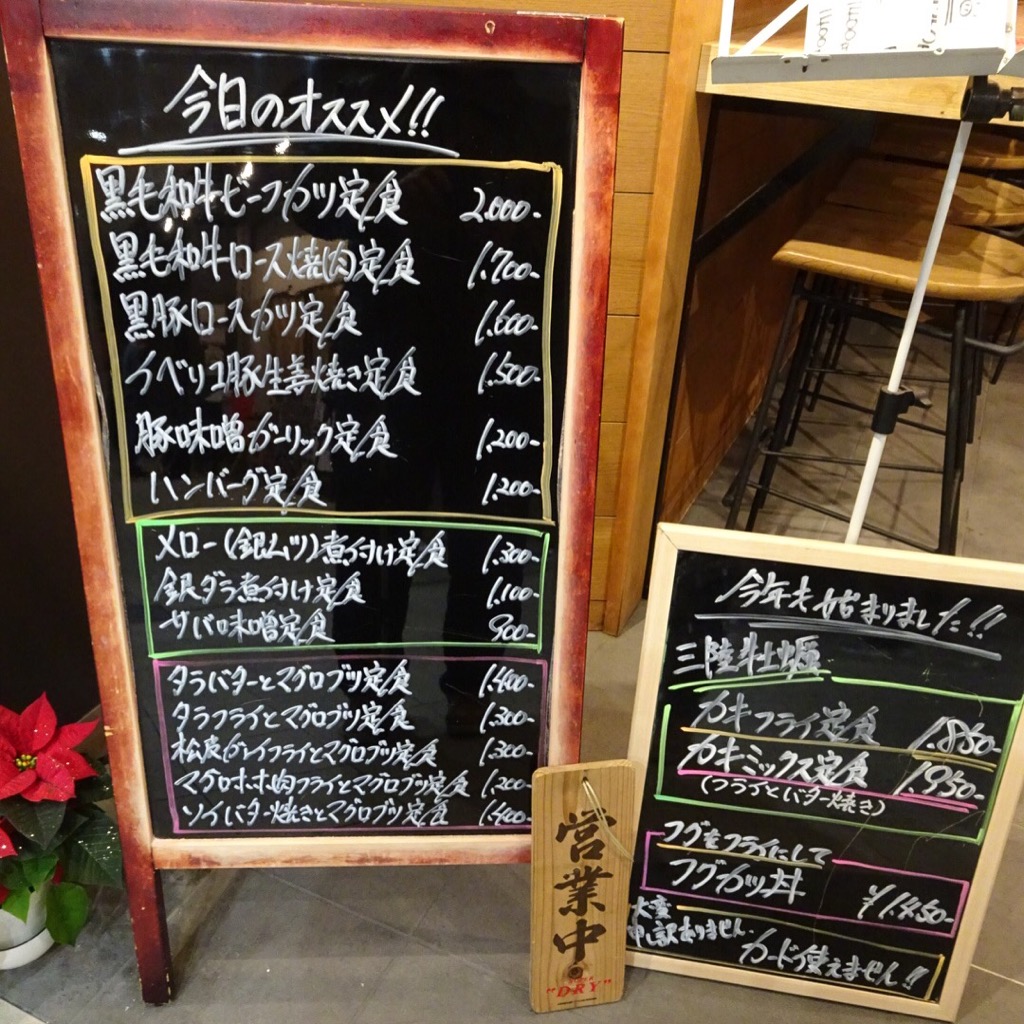 今日のオススメ!!
黒毛和牛ビーフカツ定食 2.000-
黒毛和牛ロース焼肉定食 1.700-
黒豚ロースカツ定食 1.600-
イベリコ豚生姜焼き定食 1.500-
豚味噌ガーリック定食 1.200-
ハンバーグ定食 1.200-
メロー(銀ムツ)煮付け定食 1.300-
銀ダラ煮付け定食 1.100-
サバ味噌定食 900-
タラバターとマグロブツ定食 1.400-
タラフライとマグロブツ定食 1.300-
松皮カレイフライとマグロブツ定食 1.300-
マグロホホ肉フライとマグロブツ定食 1.200-
ソイバター焼きとマグロブツ定食 1.400-
営業中
"DRY"
今年も始まりました!!
三陸牡蠣
カキフライ定食 1.850-
カキミックス定食 1.950-
(フライとバター焼き)
フグをフライにして
フグカツ丼 ¥1.450-
大変
申し訳ありません.
カード使えません!!